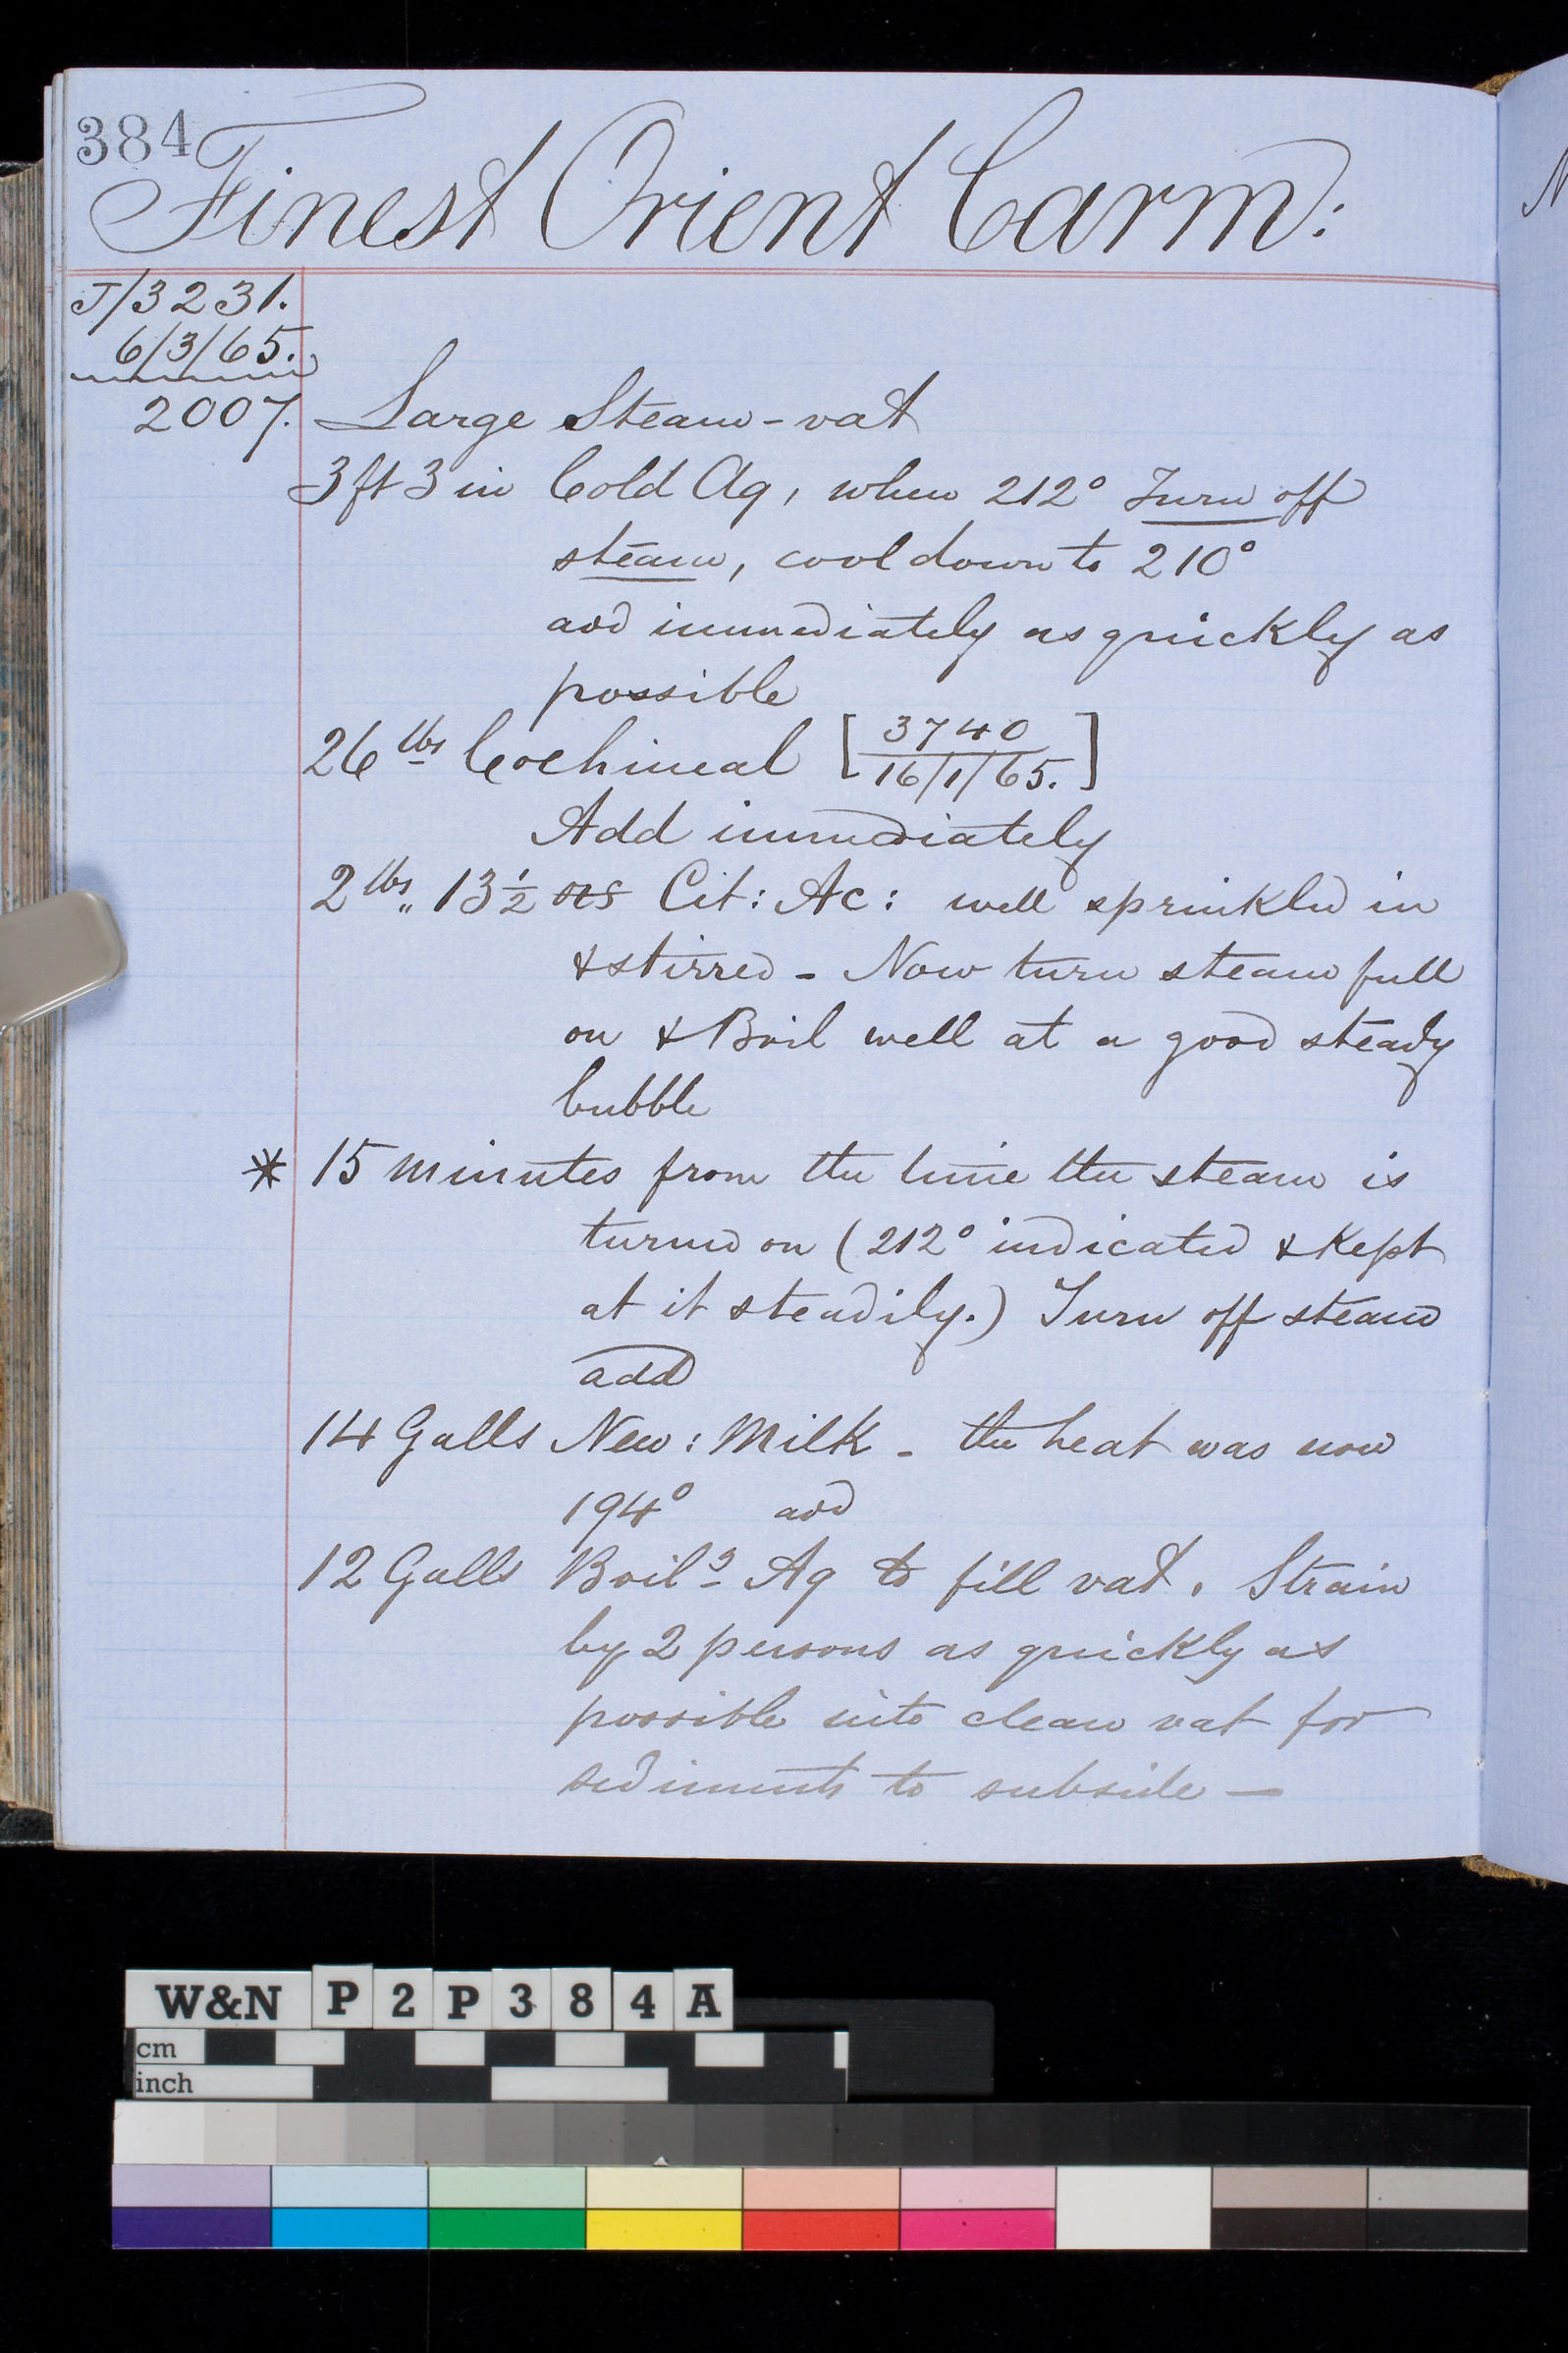 384
Finest Orient Carm:
J/3231.
6/3/65.
2007. Large Steam-vat
3 ft 3 in Cold Aq, when 212° Turn off
steam, cool down to 210°
add immediately as quickly as
possible
26 lbs Cochineal [3740
16/1/65.]
Add immediately
2 lbs,, 13½ ozs Cit: Ac: well sprinkled in
& stirred - Now turn steam full
on & Boil well at a good steady
bubble
* 15 minutes from the time the steam is
turned on (212° indicated & kept
at it steadily.) Turn off steam
add
14 Galls New: Milk - the heat was now
194° add
12 Galls Boilg Aq to fill vat. Strain
by 2 persons as quickly as
possible into clean vat for
sediments to subside —
W&N P2P384A
cm
inch